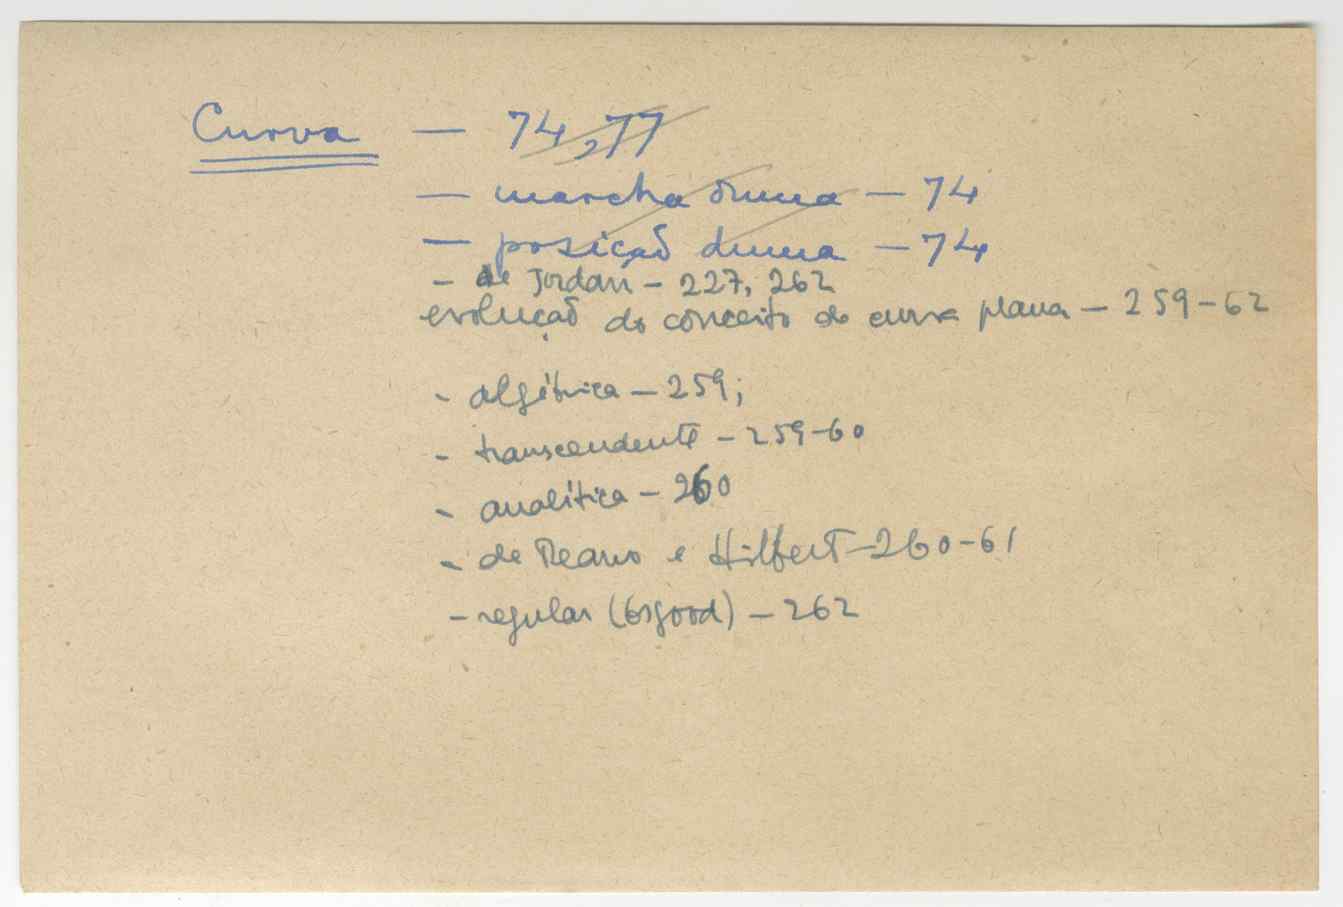 Curva — 74, 77
— marcha duma — 74
— posição duma — 74
- de Jordan - 227, 262
evolução do conceito de curva plana — 259-62
- algébrica — 259;
- transcendente - 259-60
- analítica - 260
- de Peano e Hilbert - 260-61
- regular (Osgood) - 262